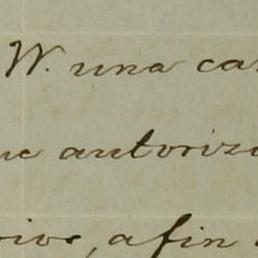 W. una ca
ue autoriz
rios, afin